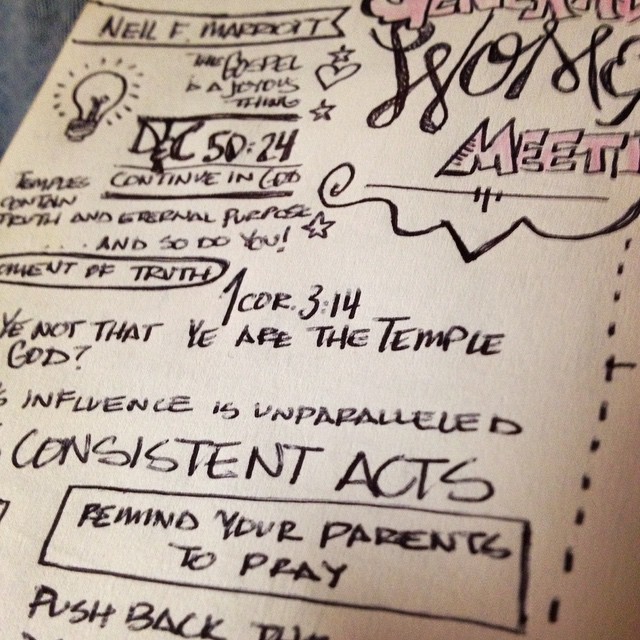 NEIL F. MARRIOTT
THE GOSPEL
IS A JOYOUS
THING
D&C 50:24
CONTINUE IN GOD
TEMPLES
CONTAIN
TRUTH AND ETERNAL PURPOSE
.... AND SO DO YOU!
OF TRUTH
1 COR. 3:14
YE NOT THAT YE ARE THE TEMPLE
GOD?
INFLUENCE IS UNPARALLELED
CONSISTENT ACTS
REMIND YOUR PARENTS
TO PRAY
PUSH BACK
GENERAL
WOME
MEETI